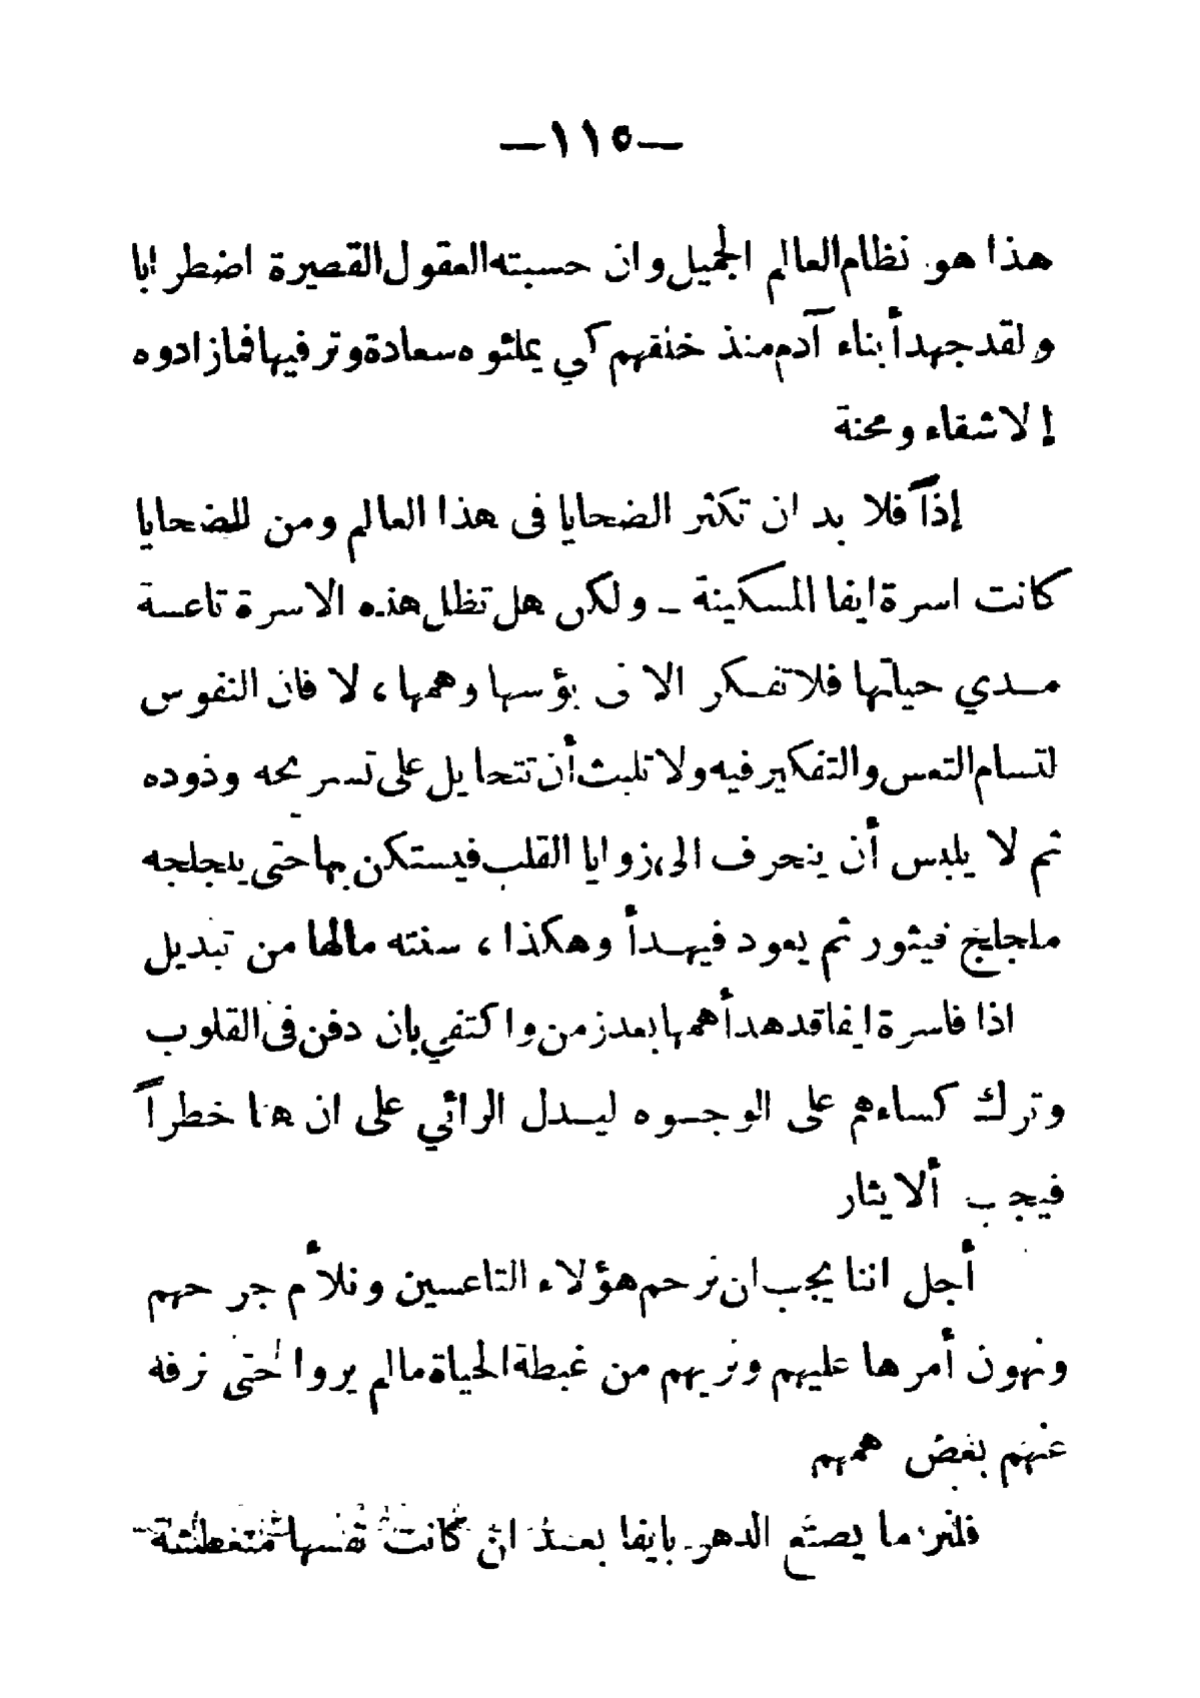 —١١٥—
هذا هو نظام العالم الجميل وان حسبته العقول القصيرة اضطرابا
ولقد جهد أبناء آدم منذ خلقهم كي يملئوه سعادة وترفيها فما زادوه
إلا شقاء ومحنة
إذاً فلا بد ان تكثر الضحايا فى هذا العالم ومن للضحايا
كانت اسرة ايفا المسكينة ـ ولكن هل تظل هذه الاسرة تاعسة
مدي حياتها فلا تفكر الا فى بؤسها وهمها ، لا فان النفوس
لتسام التعس والتفكير فيه ولا تلبث أن تتحايل على تسريحه وذوده
ثم لا يلبس أن ينحرف الى زوايا القلب فيستكن بها حتى يلجلجه
ملجلج فيثور ثم يعود فيهدأ وهكذا ، سنته مالها من تبديل
اذا فاسرة ايفا قد هدأ همها بعد زمن واكتفي بان دفن فى القلوب
وترك كساءهم على الوجوه ليدل الرائي على ان هنا خطراً
فيجب ألا يثار
أجل اننا يجب ان نرحم هؤلاء التاعسين ونلأم جرحهم
ونهون أمرها عليهم ونريهم من غبطة الحياة مالم يروا حتى نرفه
عنهم بعض همهم
فلنر ما يصنع الدهر بايفا بعد ان كانت نفسها